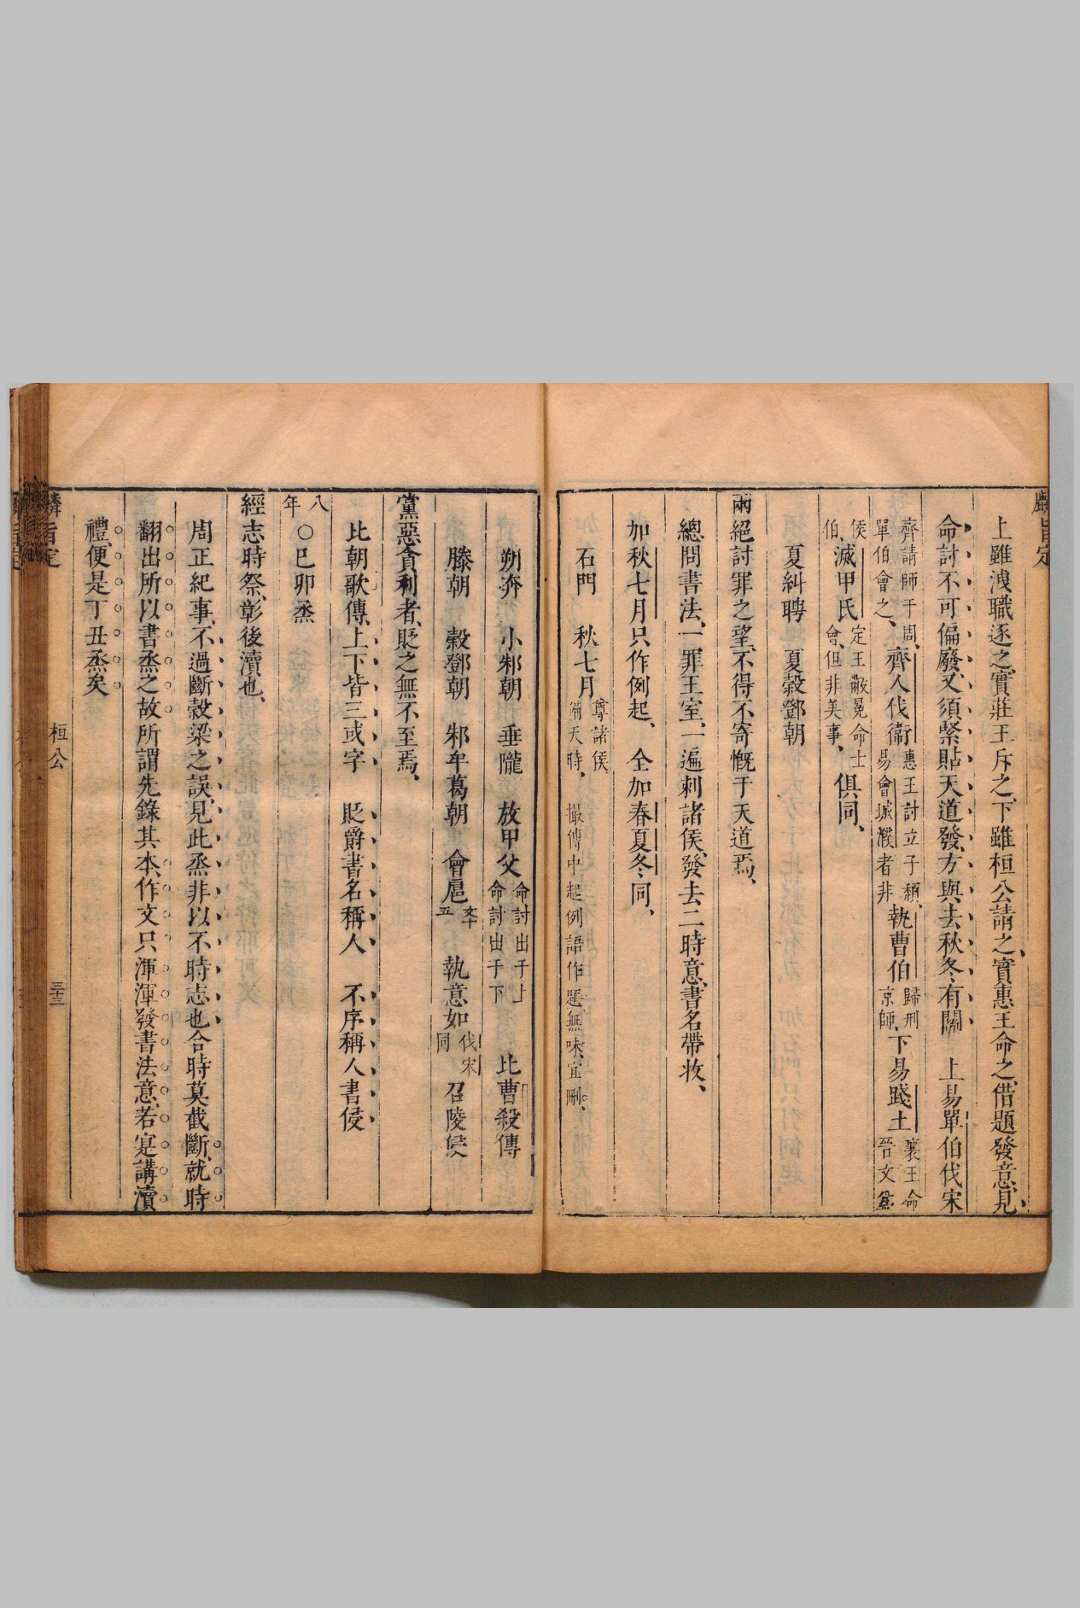 麟旨定
上雖洩職逐之實莊王斥之下雖桓公請之實惠王命之借題發意見
命討不可偏廢又須緊貼天道發方與去秋冬有關　上易單伯伐宋
齊請師于周單伯會之齊人伐衛惠王討立子頹易會城濮者非執曹伯歸刑京師下易踐土襄王命晉文為
侯伯滅甲氏定王黻冕命士會但非美事俱同
夏糾聘　夏穀鄧朝
兩絕討罪之望不得不寄慨于天道焉
總問書法一罪王室一遍刺諸侯發去二時意書名帶收
加秋七月只作例起　全加春夏冬同
石門　秋七月尊諸侯備天時　撮傳中起例語作題無味宜刪
朔奔　小邾朝　垂隴　放甲父命討出于上命討出于下　比曹殺傳
滕朝　穀鄧朝　邾牟葛朝　會扈文十五　執意如伐宋同　召陵侵
黨惡貪利者貶之無不至焉
比朝歌傳上下皆三或字　貶爵書名稱人　不序稱人書侵
八年○巳卯烝
經志時祭彰後瀆也
周正紀事不過斷穀梁之誤見此烝非以不時志也合時莫截斷就時
翻出所以書烝之故所謂先錄其本作文只渾渾發書法意若寔講瀆
禮便是丁丑烝矣
麟旨定
桓公
三十三